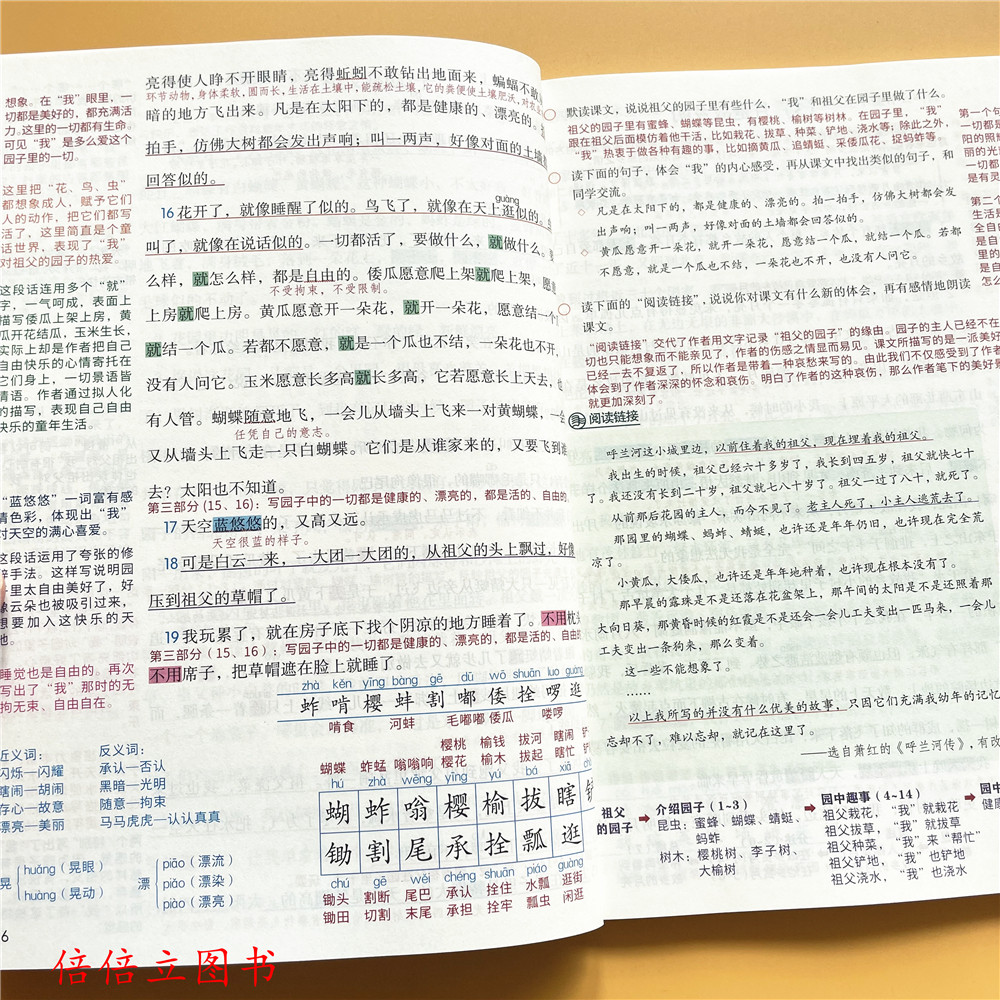 想象。在“我”眼里，一
切都是美好的，都充满活
力。这里的一切都有生命。
可见“我”是多么爱这个
园子里的一切。
这里把“花、鸟、虫”
都想象成人，赋予它们
人的动作，把它们都写
活了，这里简直是个童
话世界，表现了“我”
对祖父的园子的热爱。
这段话连用多个“就”
字，一气呵成，表面上
描写倭瓜上架上房，黄
瓜开花结瓜，玉米生长，
实际上却是作者把自己
自由快乐的心情寄托在
它们身上，一切景语皆
情语。作者通过拟人化
的描写，表现自己自由
快乐的童年生活。
“蓝悠悠”一词富有感
情色彩，体现出“我”
对天空的满心喜爱。
这段话运用了夸张的修
辞手法。这样写说明园
里太自由美好了，好
像云朵也被吸引过来，
想要加入这快乐的天
地。
睡觉也是自由的。再次
写出了“我”那时的无
拘无束、自由自在。
亮得使人睁不开眼睛，亮得蚯蚓不敢钻出地面来，蝙蝠不敢
环节动物，身体柔软，圆而长，生活在土壤中，能疏松土壤，它的粪便使土壤肥沃，对农
暗的地方飞出来。凡是在太阳下的，都是健康的、漂亮的。
拍手，仿佛大树都会发出声响；叫一两声，好像对面的土墙
回答似的。
guàng
16 花开了，就像睡醒了似的。鸟飞了，就像在天上逛似的。
叫了，就像在说话似的。一切都活了，要做什么，就做什么。
么样，就怎么样，都是自由的。倭瓜愿意爬上架就爬上架，愿
不受拘束，不受限制。
上房就爬上房。黄瓜愿意开一朵花，就开一朵花，愿意结一个
就结一个瓜。若都不愿意，就是一个瓜也不结，一朵花也不开，
没有人问它。玉米愿意长多高就长多高，它若愿意长上天去，
有人管。蝴蝶随意地飞，一会儿从墙头上飞来一对黄蝴蝶，一
任凭自己的意志。
又从墙头上飞走一只白蝴蝶。它们是从谁家来的，又要飞到
去？太阳也不知道。
第三部分(15、16)：写园子中的一切都是健康的、漂亮的，都是活的、自由的
17 天空蓝悠悠的，又高又远。
天空很蓝的样子。
18 可是白云一来，一大团一大团的，从祖父的头上飘过，好像
压到祖父的草帽了。
19 我玩累了，就在房子底下找个阴凉的地方睡着了。不用枕
第三部分（15、16）：写园子中的一切都是健康的、漂亮的，都是活的、自由
不用席子，把草帽遮在脸上就睡了。
zhà kěn yīng bàng gē dū wō shuān luo guàng
蚱 啃 樱 蚌 割 嘟 倭 拴 啰 逛
啃食 河蚌 毛嘟嘟 倭瓜 喽啰
樱桃 榆钱 拔河 瞎闹
蝴蝶 蚱蜢 嗡嗡响 樱花 榆木 拔起 瞎忙
hú zhà wēng yīng yú bá xiā
蝴 蚱 嗡 樱 榆 拔 瞎
锄 割 尾 承 拴 瓢 逛
chú gē wěi chéng shuān piáo guàng
锄头 割断 尾巴 承认 拴住 水瓢 逛街
锄田 切割 末尾 承担 拴牢 瓢虫 闲逛
近义词：
闪烁—闪耀
瞎闹—胡闹
存心—故意
漂亮—美丽
反义词：
承认—否认
黑暗—光明
随意—拘束
马马虎虎—认认真真
晃
huǎng（晃眼）
huàng（晃动）
漂
piāo（漂流）
piǎo（漂染）
piào（漂亮）
6
默读课文，说说祖父的园子里有些什么，“我”和祖父在园子里做了什么。
祖父的园子里有蜜蜂、蝴蝶等昆虫，有樱桃、榆树等树林。在园子里，“我”
跟在祖父后面模仿着他干活，比如栽花、拔草、种菜、铲地、浇水等；除此之外，
“我”热衷于做各种有趣的事，比如摘黄瓜、追蜻蜓、采倭瓜花、捉蚂蚱等。
读下面的句子，体会“我”的内心感受，再从课文中找出类似的句子，和
同学交流。
◇ 凡是在太阳下的，都是健康的、漂亮的。拍一拍手，仿佛大树都会发
出声响；叫一两声，好像对面的土墙都会回答似的。
◇ 黄瓜愿意开一朵花，就开一朵花，愿意结一个瓜，就结一个瓜。若都
不愿意，就是一个瓜也不结，一朵花也不开，也没有人问它。
读下面的“阅读链接”，说说你对课文有什么新的体会，再有感情地朗读
课文。
“阅读链接”交代了作者用文字记录“祖父的园子”的缘由。园子的主人已经不在
切也只能想象而不能亲见了，作者的伤感之情显而易见。课文所描写的是一派美好
已经一去不复返了，所以作者是带着一种哀愁来写的。由此我们不仅感受到了作者
体会到了作者深深的怀念和哀伤，明白了作者的这种哀伤，那么作者笔下的美好景
就更加深刻了。
阅读链接
呼兰河这小城里边，以前住着我的祖父，现在埋着我的祖父。
我出生的时候，祖父已经六十多岁了，我长到四五岁，祖父就快七十
了。我还没有长到二十岁，祖父就七八十岁了。祖父一过了八十，就死了。
从前那后花园的主人，而今不见了。老主人死了，小主人逃荒去了。
那园里的蝴蝶、蚂蚱、蜻蜓，也许还是年年仍旧，也许现在完全荒
凉了。
小黄瓜，大倭瓜，也许还是年年地种着，也许现在根本没有了。
那早晨的露珠是不是还落在花盆架上，那午间的太阳是不是还照着那
大向日葵，那黄昏时候的红霞是不是还会一会儿工夫变出一匹马来，一会儿
工夫变出一条狗来，那么变着。
这一些不能想象了。
……
以上我所写的并没有什么优美的故事，只因它们充满我幼年的记忆
忘却不了，难以忘却，就记在这里了。
——选自萧红的《呼兰河传》，有改
祖父
的园子
介绍园子（1~3）
昆虫：蜜蜂、蝴蝶、蜻蜓、
蚂蚱
树木：樱桃树、李子树、
大榆树
园中趣事（4~14）
祖父栽花，“我”就栽花
祖父拔草，“我”就拔草
祖父种菜，“我”来“帮忙”
祖父铲地，“我”也铲地
祖父浇水，“我”也浇水
园中
健康
第一个句
第二个
倍倍立图书